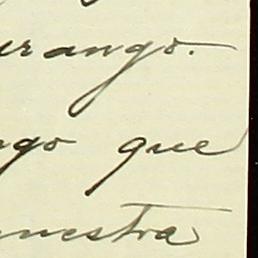 urango.
ngo que
uestra